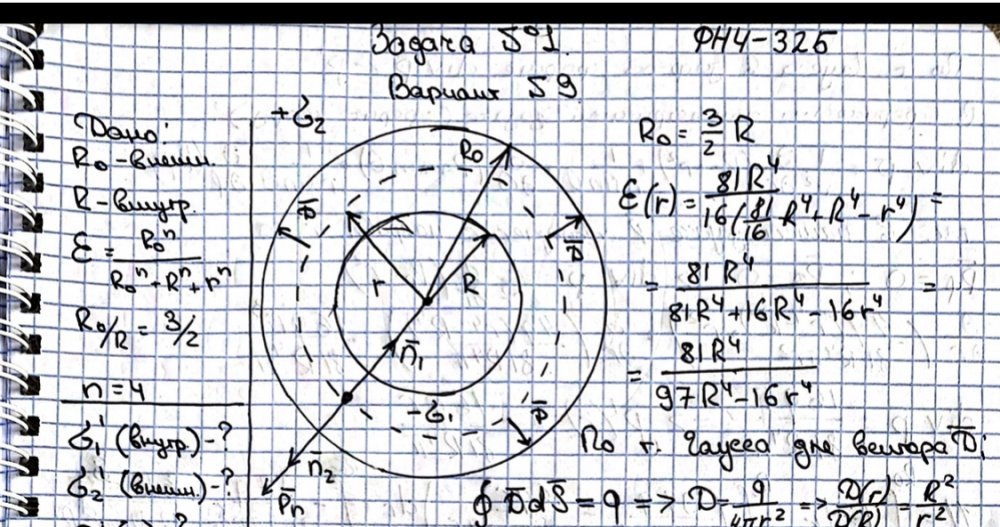 Задача №1.
ФН4-32Б
Вариант 59
Дано:
R₀ - внешн.
R - внутр.
ε = R₀ⁿ / (R₀ⁿ + Rⁿ + rⁿ)
R₀/R = 3/2
n = 4
σ₁' (внутр.) - ?
σ₂' (внешн.) - ?
+σ₂
R₀
D̄
D̄
r
R
n̄₁
-σ₁
D̄
n̄₂
P̄n
R₀ = 3/2 R
ε(r) = 81R⁴ / 16(81/16 R⁴ + R⁴ - r⁴) =
= 81R⁴ / (81R⁴ + 16R⁴ - 16r⁴) =
= 81R⁴ / (97R⁴ - 16r⁴)
По т. Гаусса для вектора D̄:
∮ D̄ dS̄ = q => D = q / 4πr² => D(r) / D(R) = R² / r²